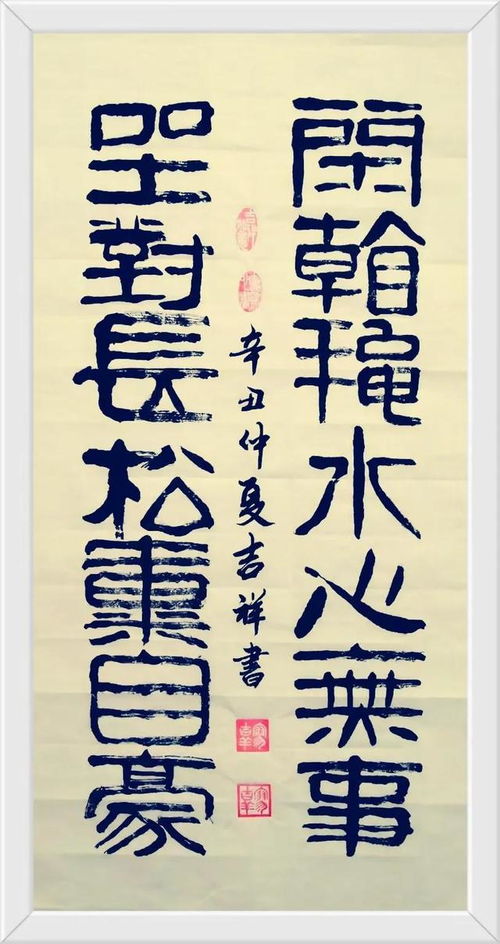 閑看龝水心無事
坐對長松自豪
辛丑仲夏吉祥書